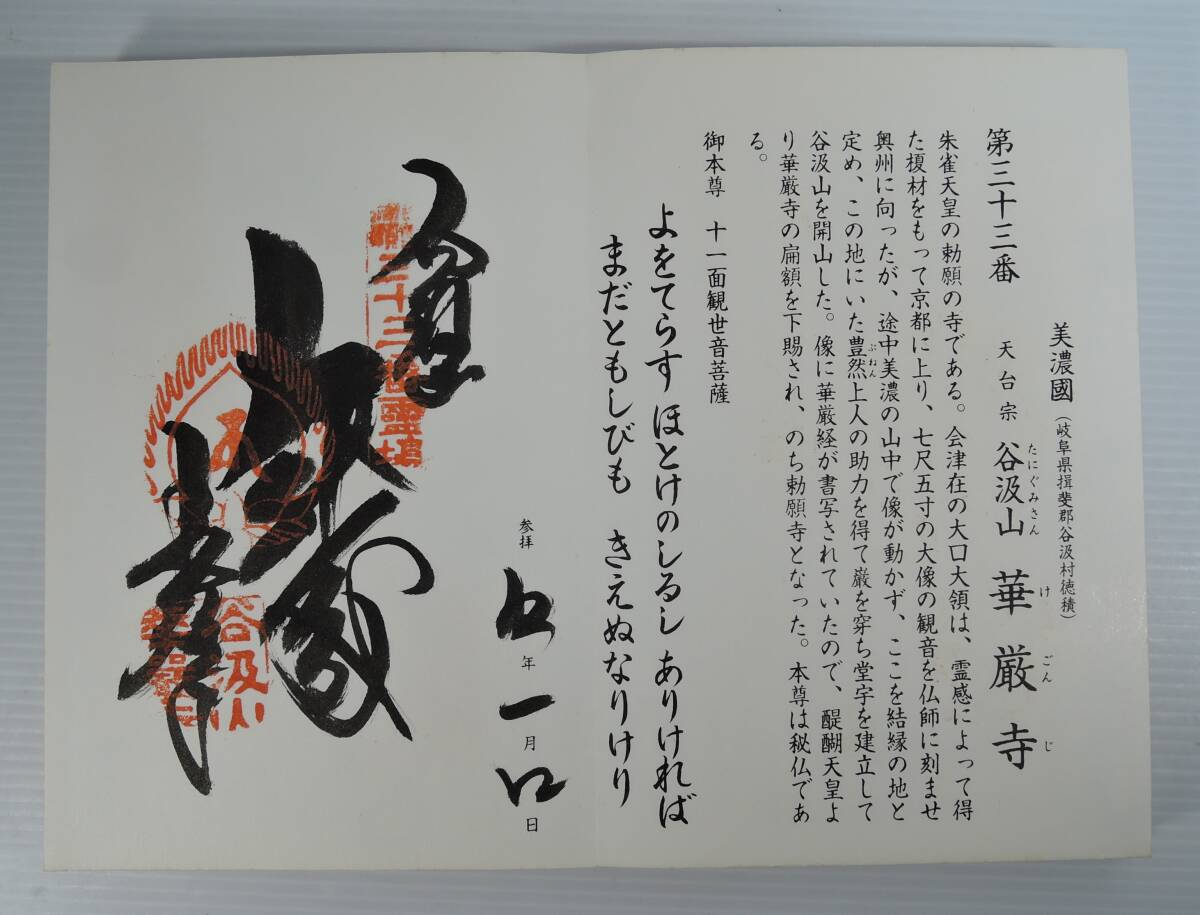 美濃國（岐阜県揖斐郡谷汲村徳積）
第三十三番　天台宗　谷汲山　華厳寺
たにぐみさん　けごんじ
朱雀天皇の勅願の寺である。会津在の大口大領は、霊感によって得
た榎材をもって京都に上り、七尺五寸の大像の観音を仏師に刻ませ
奥州に向ったが、途中美濃の山中で像が動かず、ここを結縁の地と
定め、この地にいた豊然上人の助力を得て厳を穿ち堂宇を建立して
ぶねん
谷汲山を開山した。像に華厳経が書写されていたので、醍醐天皇よ
り華厳寺の扁額を下賜され、のち勅願寺となった。本尊は秘仏であ
る。
御本尊　十一面観世音菩薩
よをてらす ほとけのしるし ありければ
まだともしびも　きえぬなりけり
参拝　年　一月　日
谷汲山